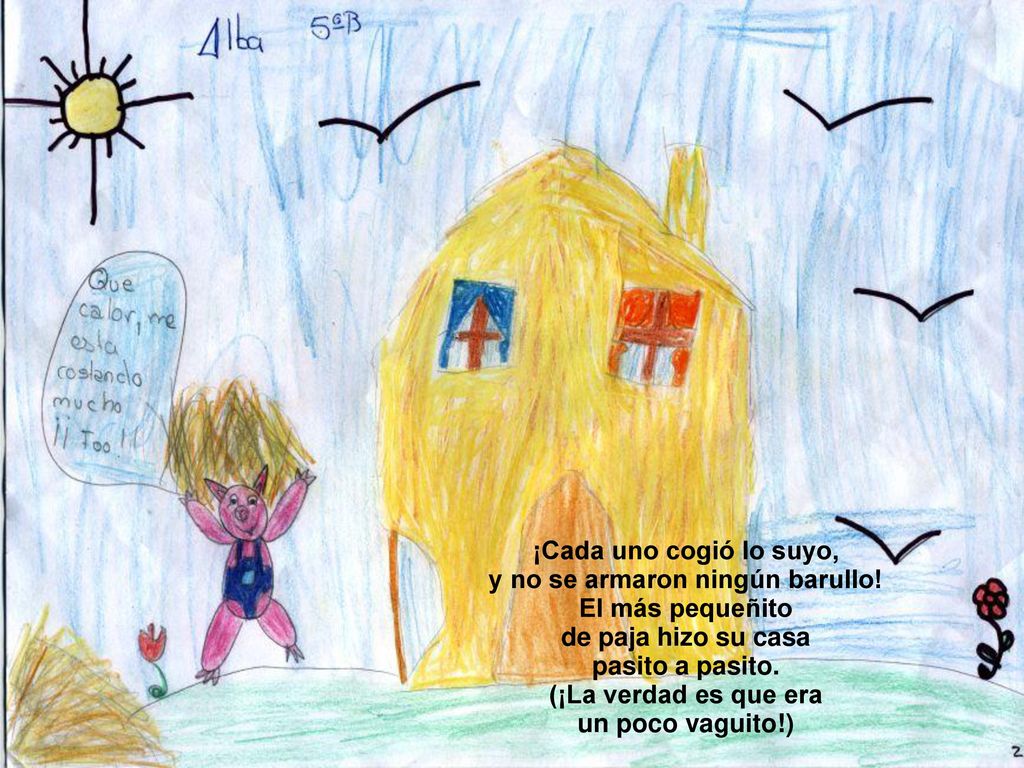 Alba 5ºB
Que
calor, me
esta
costando
mucho
¡¡ Too !!
¡Cada uno cogió lo suyo,
y no se armaron ningún barullo!
El más pequeñito
de paja hizo su casa
pasito a pasito.
(¡La verdad es que era
un poco vaguito!)
2